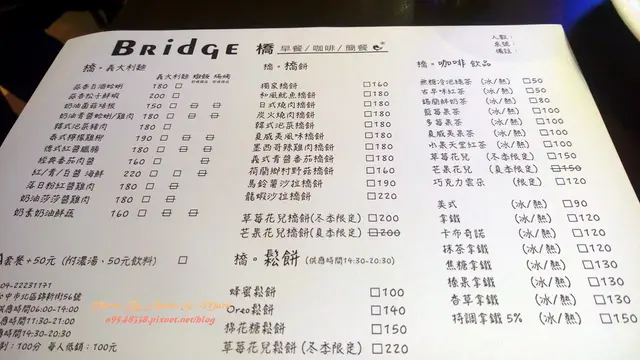 BRidGE 橋 早餐/咖啡/簡餐
人數:
桌號:
備註:
橋·義大利麵
義大利麵 燉飯 焗烤
蒜香白酒蛤蜊 180 □
蒜香松子鮮蝦 200 □
奶油南蕊培根 150 □
奶油青醬蛤蜊/雞肉 180 □
韓式泡菜豬肉 180 □
泰式檸檬雞柳 190 □
德式紅醬臘腸 180 □
經典番茄肉醬 160 □
紅/青/白醬 海鮮 220 □ □
落日粉紅醬雞肉 180 □
奶油莎莎醬雞肉 180 □
奶素奶油鮮蔬 160 □
A套餐+50元 (附濃湯、50元飲料) □
04-22231191
台中市北區錦新街56號
供應時間06:00-14:00
供應時間11:30-21:00
供應時間14:30-20:30
100分 每人低銷:100元
橋·橋餅
獨家橋餅 □160
和風魷魚橋餅 □180
日式燒肉橋餅 □180
炭火燒肉橋餅 □180
韓式泡菜橋餅 □180
夏威夷風味橋餅 □180
墨西哥辣雞肉橋餅 □180
義式青醬番茄橋餅 □180
荷蘭鄉村野菇橋餅 □180
馬鈴薯沙拉橋餅 □190
龍蝦沙拉橋餅 □220
草莓花兒橋餅(冬季限定) □200
芒果花兒橋餅(夏季限定) □200
橋·鬆餅 (供應時間14:30-20:30)
蜂蜜鬆餅 □100
Oreo鬆餅 □140
棉花糖鬆餅 □150
草莓花兒鬆餅(冬季限定) □220
橋·咖啡 飲品
無糖冷泡綠茶 (冰/熱) □50
古早味紅茶 (冰/熱) □50
錫蘭鮮奶茶 (冰/熱) □80
藍莓果茶 (冰/熱) □100
多莓果茶 (冰/熱) □100
夏威夷果茶 (冰/熱) □100
小果天堂紅茶 (冰/熱) □100
草莓花兒 (冬季限定) □150
芒果花兒 (夏季限定) □150
巧克力雲朵 (限定) □120
美式 (冰/熱) □90
拿鐵 (冰/熱) □120
卡布奇諾 (冰/熱) □120
抹茶拿鐵 (冰/熱) □120
焦糖拿鐵 (冰/熱) □130
榛果拿鐵 (冰/熱) □130
香草拿鐵 (冰/熱) □130
特調拿鐵 5% (冰/熱) □150